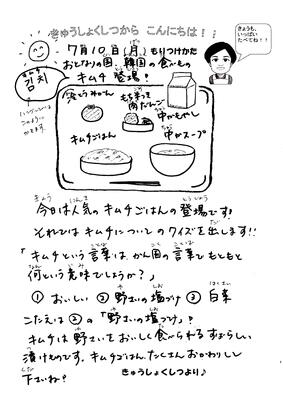 きゅうしょくしつから こんにちは！！
きょうも、
いっぱい
たべてね！！
7月10日（月） もりつけかた
おとなりの国、韓国の食べもの
キムチ 登場！
キムチ
김치
もち米って
肉だんご
中かもやし
キムチごはん
中かスープ
今日は人気のキムチごはんの登場です！
それではキムチについてのクイズを出します！！
「キムチという言葉は、かん国の言葉でもともと
何という意味でしょうか？」
① おいしい ② 野さいの塩づけ ③ 白菜
こたえは②の「野さいの塩づけ」？
キムチは野さいをおいしく食べられるすばらしい
漬けものです。キムチごはん、たくさんおかわりして
下さいね？
きゅうしょくしつより♪